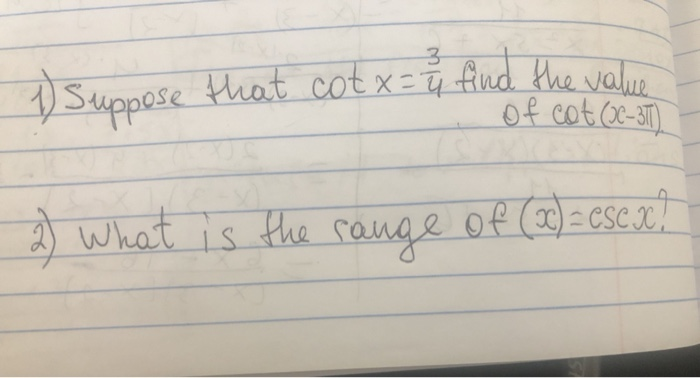 1) Suppose that cot x = 3/4 find the value
of cot (x-3π)
2) What is the range of (x) = csc x?